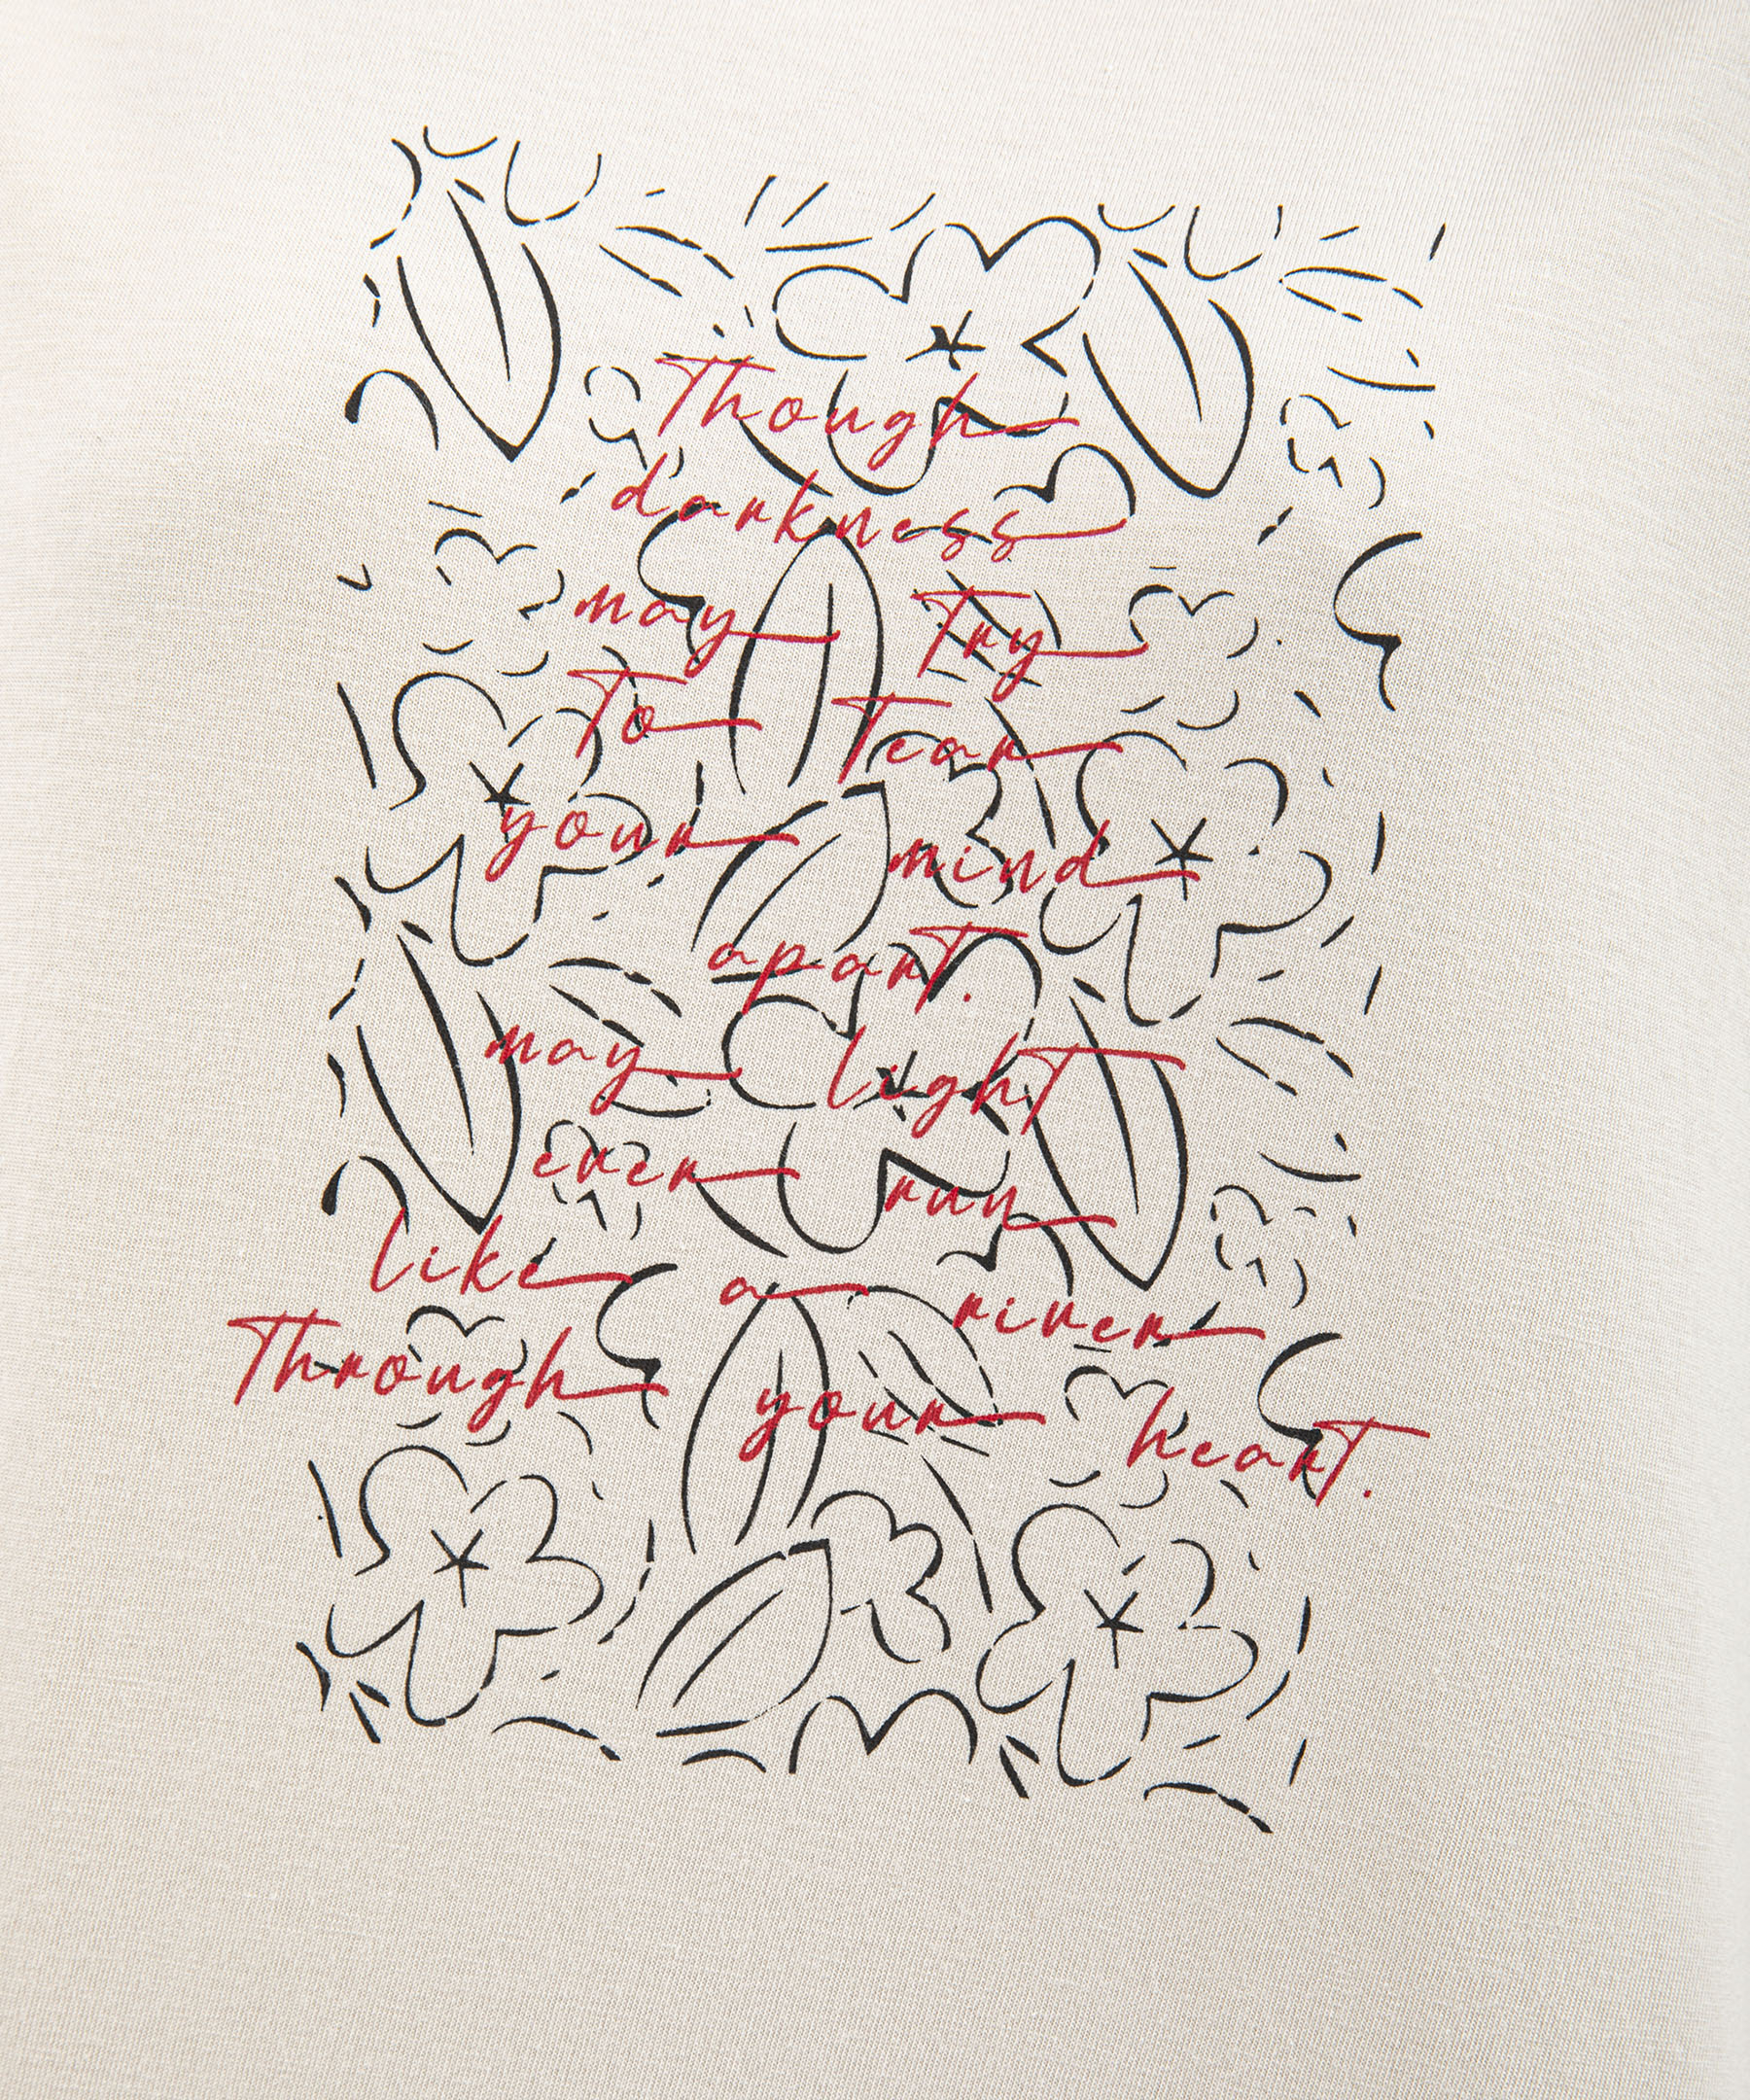 Though
darkness
may Try
To Tear
your mind
aparT.
may lighT
ever run
like a river
Through your hearT.